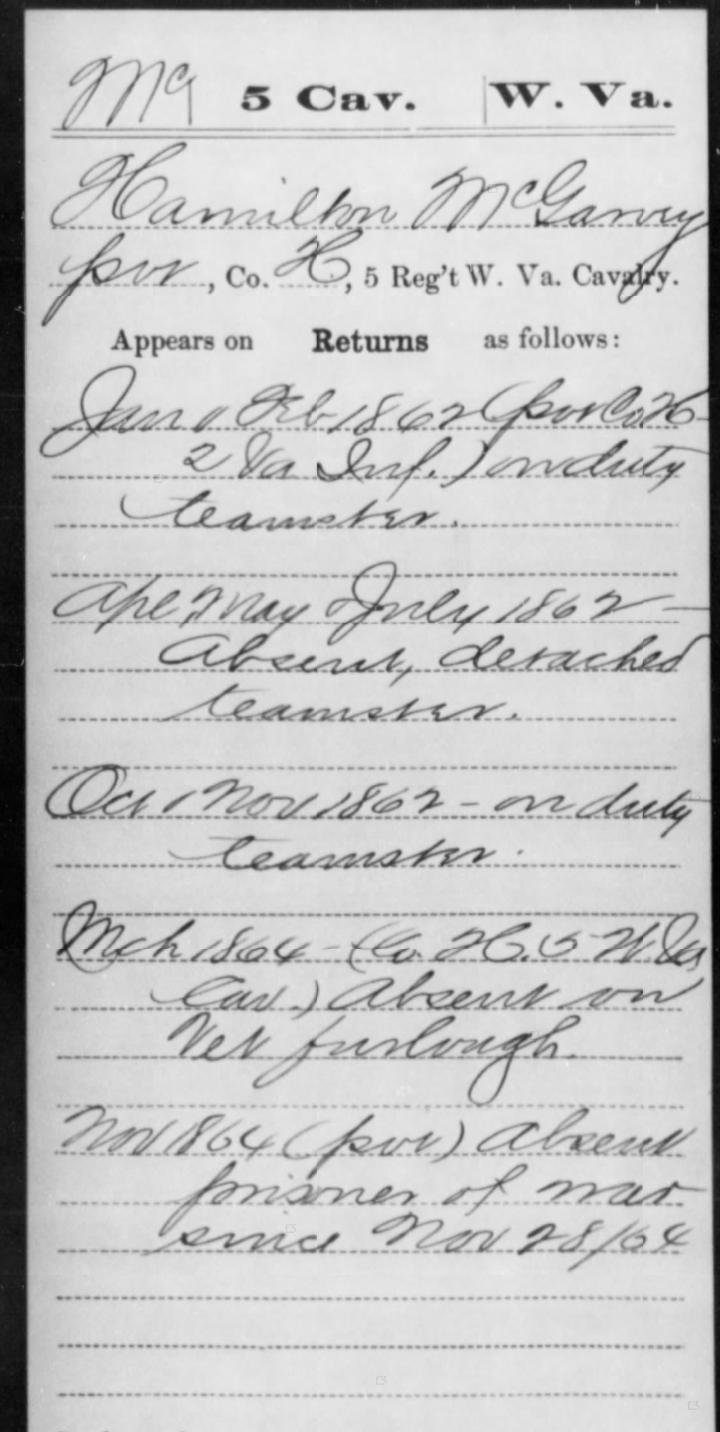 Mc 5 Cav. W. Va.
Hamilton McGarvey
pvt, Co. H, 5 Reg't W. Va. Cavalry.
Appears on Returns as follows:
Jan & Feb 1862 (pvt Co. H
2 Va Inf.) on duty
teamster.
Apl, May & July 1862 —
Absent, detached
teamster.
Oct & Nov 1862 - on duty
teamster.
Mch 1864 - (Co. H. 5 W Va
Cav.) Absent on
Vet furlough.
Nov 1864 (pvt) Absent
prisoner of war
since Nov 28/64